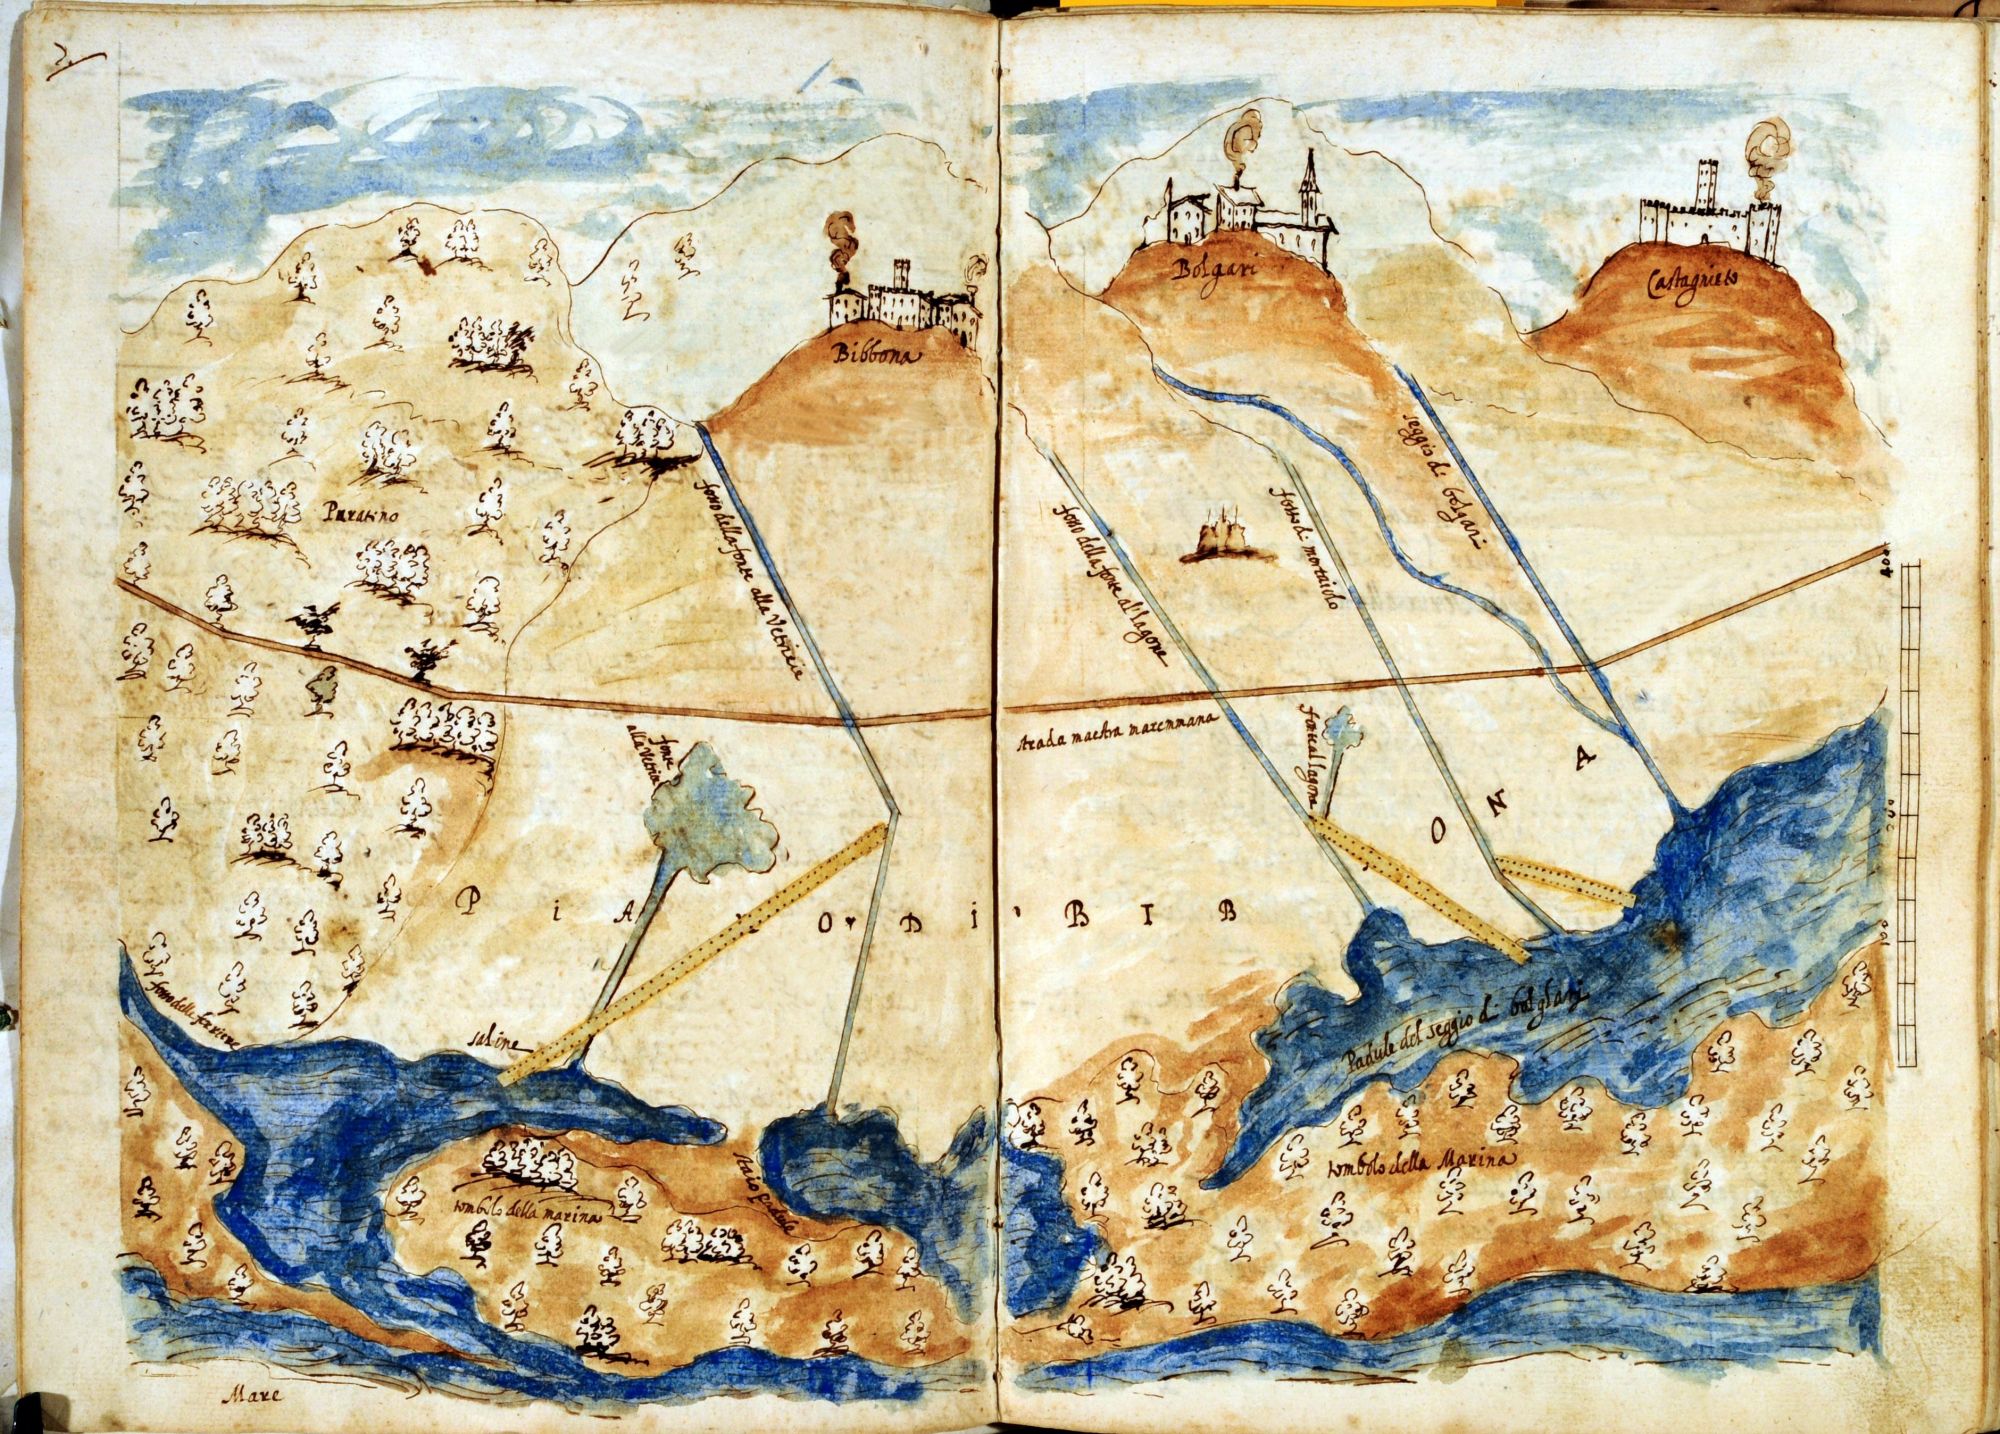 2.
Bibbona
Bolgari
Castagnieto
Puratino
fosso della fonte alla Vetricie
fosso della fonte al lagone
fosso di mortaiolo
seggio di bolgari
400
strada maestra maremmana
fonte
alla Vetricie
fonte al lagone
200
100
P i A O D i B I B O N A
fosso delle
saline
Padule del seggio di bolghari
tombolo della marina
tombolo della Marina
Mare